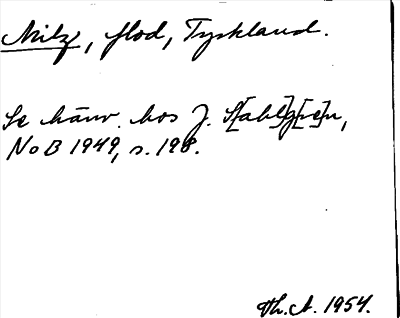 Milz, flod, Tyskland.
Se hänv. hos J. S[ahl]g[re]n,
NoB 1949, s. 198.
Th. A. 1954.